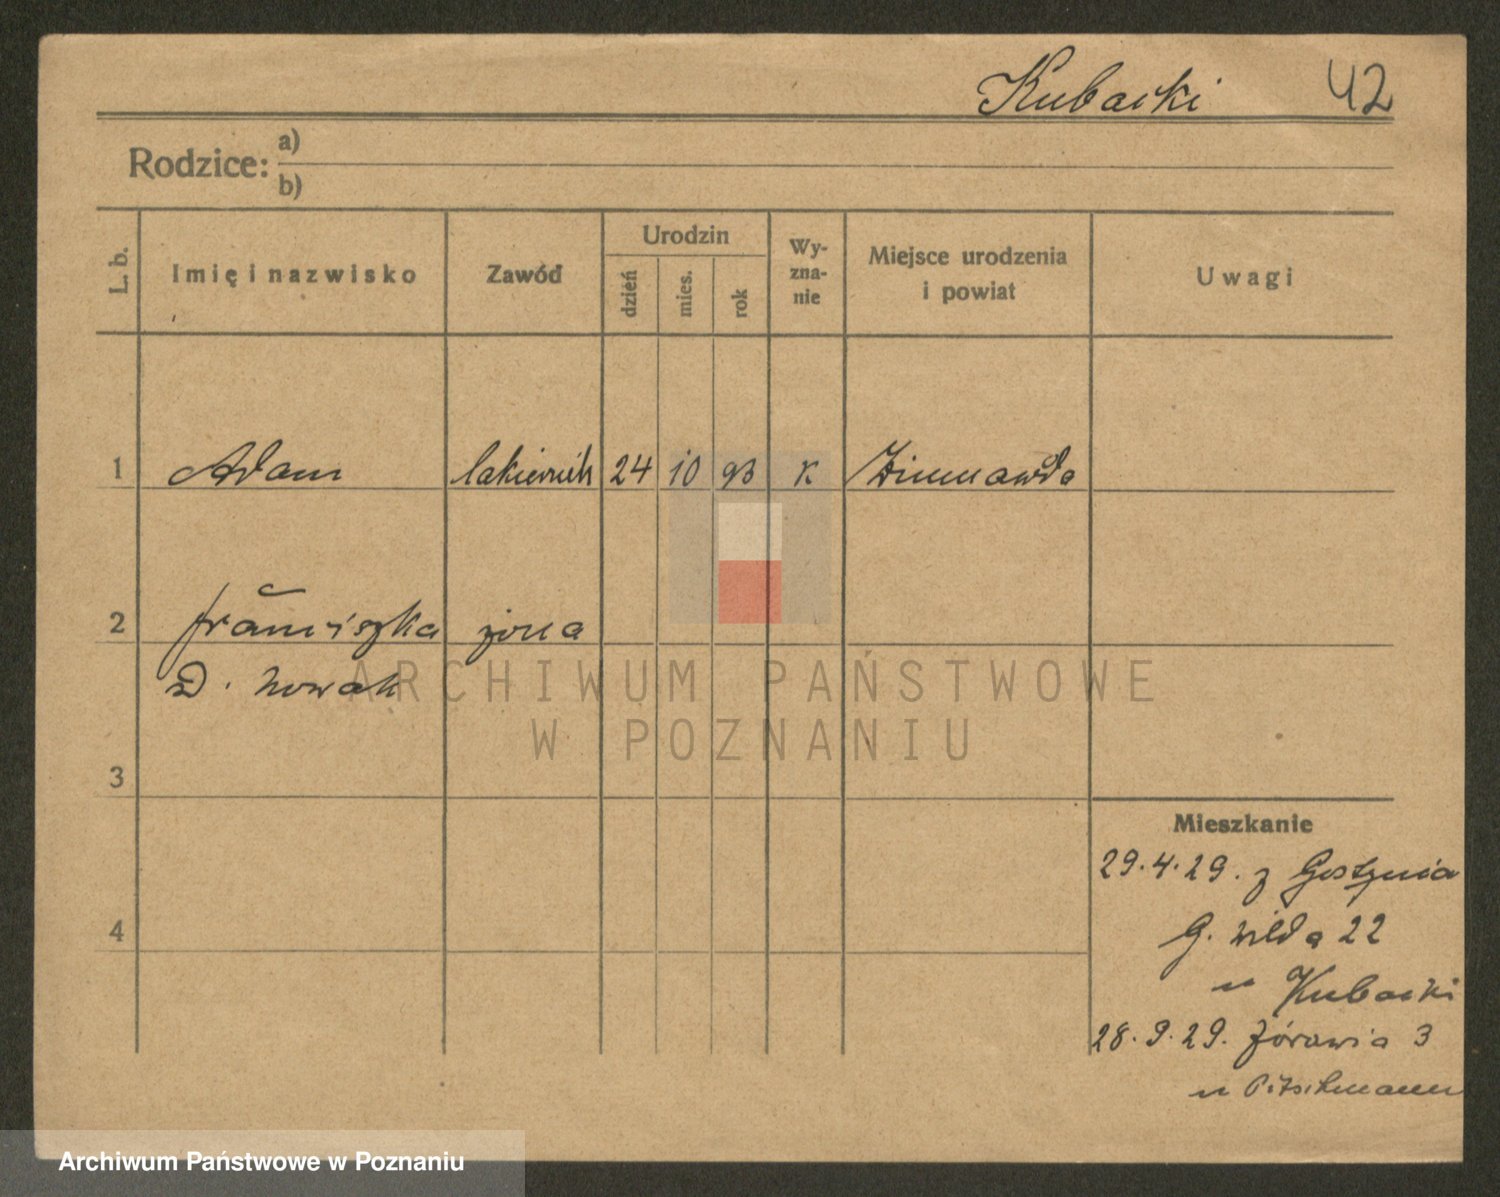 Kubacki 42
Rodzice: a)
b)
L. b. Imię i nazwisko Zawód Urodzin dzień mies. rok Wy-zna-nie Miejsce urodzenia i powiat Uwagi
1 Adam lakiernik 24 10 93 K Zimnawoda
2 Franciszka żona
D. Nowak
3
4
Mieszkanie
29.4.29. z Gostynia
G. Wilda 22
u Kubacki
28.9.29. Żórawia 3
u
ARCHIWUM PAŃSTWOWE
W POZNANIU
Archiwum Państwowe w Poznaniu